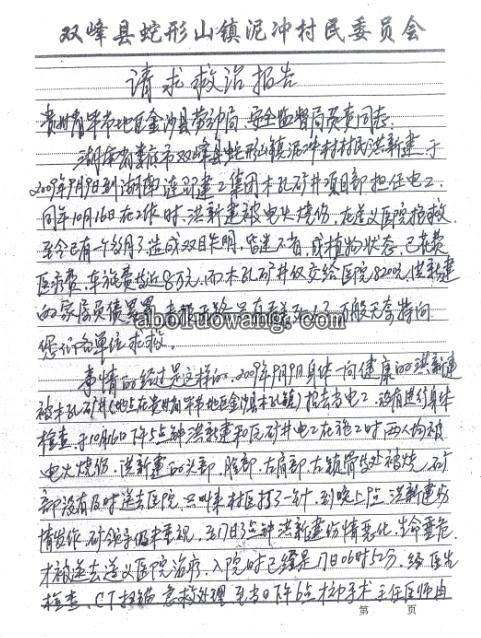 双峰县蛇形山镇泥冲村民委员会
请求救治报告
贵州省毕节地区金沙县劳动局、安全监督局负责同志:
湖南省娄底市双峰县蛇形山镇泥冲村村民洪新建于
2009年9月9日到湖南涟邵建工集团木孔矿井项目部担任电工,
同年10月16日在工作时,洪新建被电火烧伤,在遵义医院抢救
至今已有一个多月了,造成双目失明,昏迷不省,成植物状态,已花费
医疗费、车旅费将近8万元,而木孔矿井仅交给医院8200元,洪新建
的家属负债累累 万般无奈特向
您们各单位求救。
事情的经过是这样的,2009年9月9日身体一向健康的洪新建
被木孔矿井(地点在贵州省毕节地区金沙县木孔镇)招去当电工,没有进行身体
检查,于10月16日下午5点钟洪新建和区矿井电工在施工时两人均被
电火烧伤,洪新建的头部,脸部,右肩部,右锁骨处被烧,矿
部没有及时送去医院,只叫来村医打了一针,到晚上9点,洪新建伤
情发作,矿领导仍未重视,至17日3点钟洪新建伤情恶化,生命垂危,
才被送去遵义医院治疗,入院时已经是17日06时52分,经医生
检查、CT扫描 急救处理 至当日下午6点 手术 主任医师由
第 页
aboluowang.com